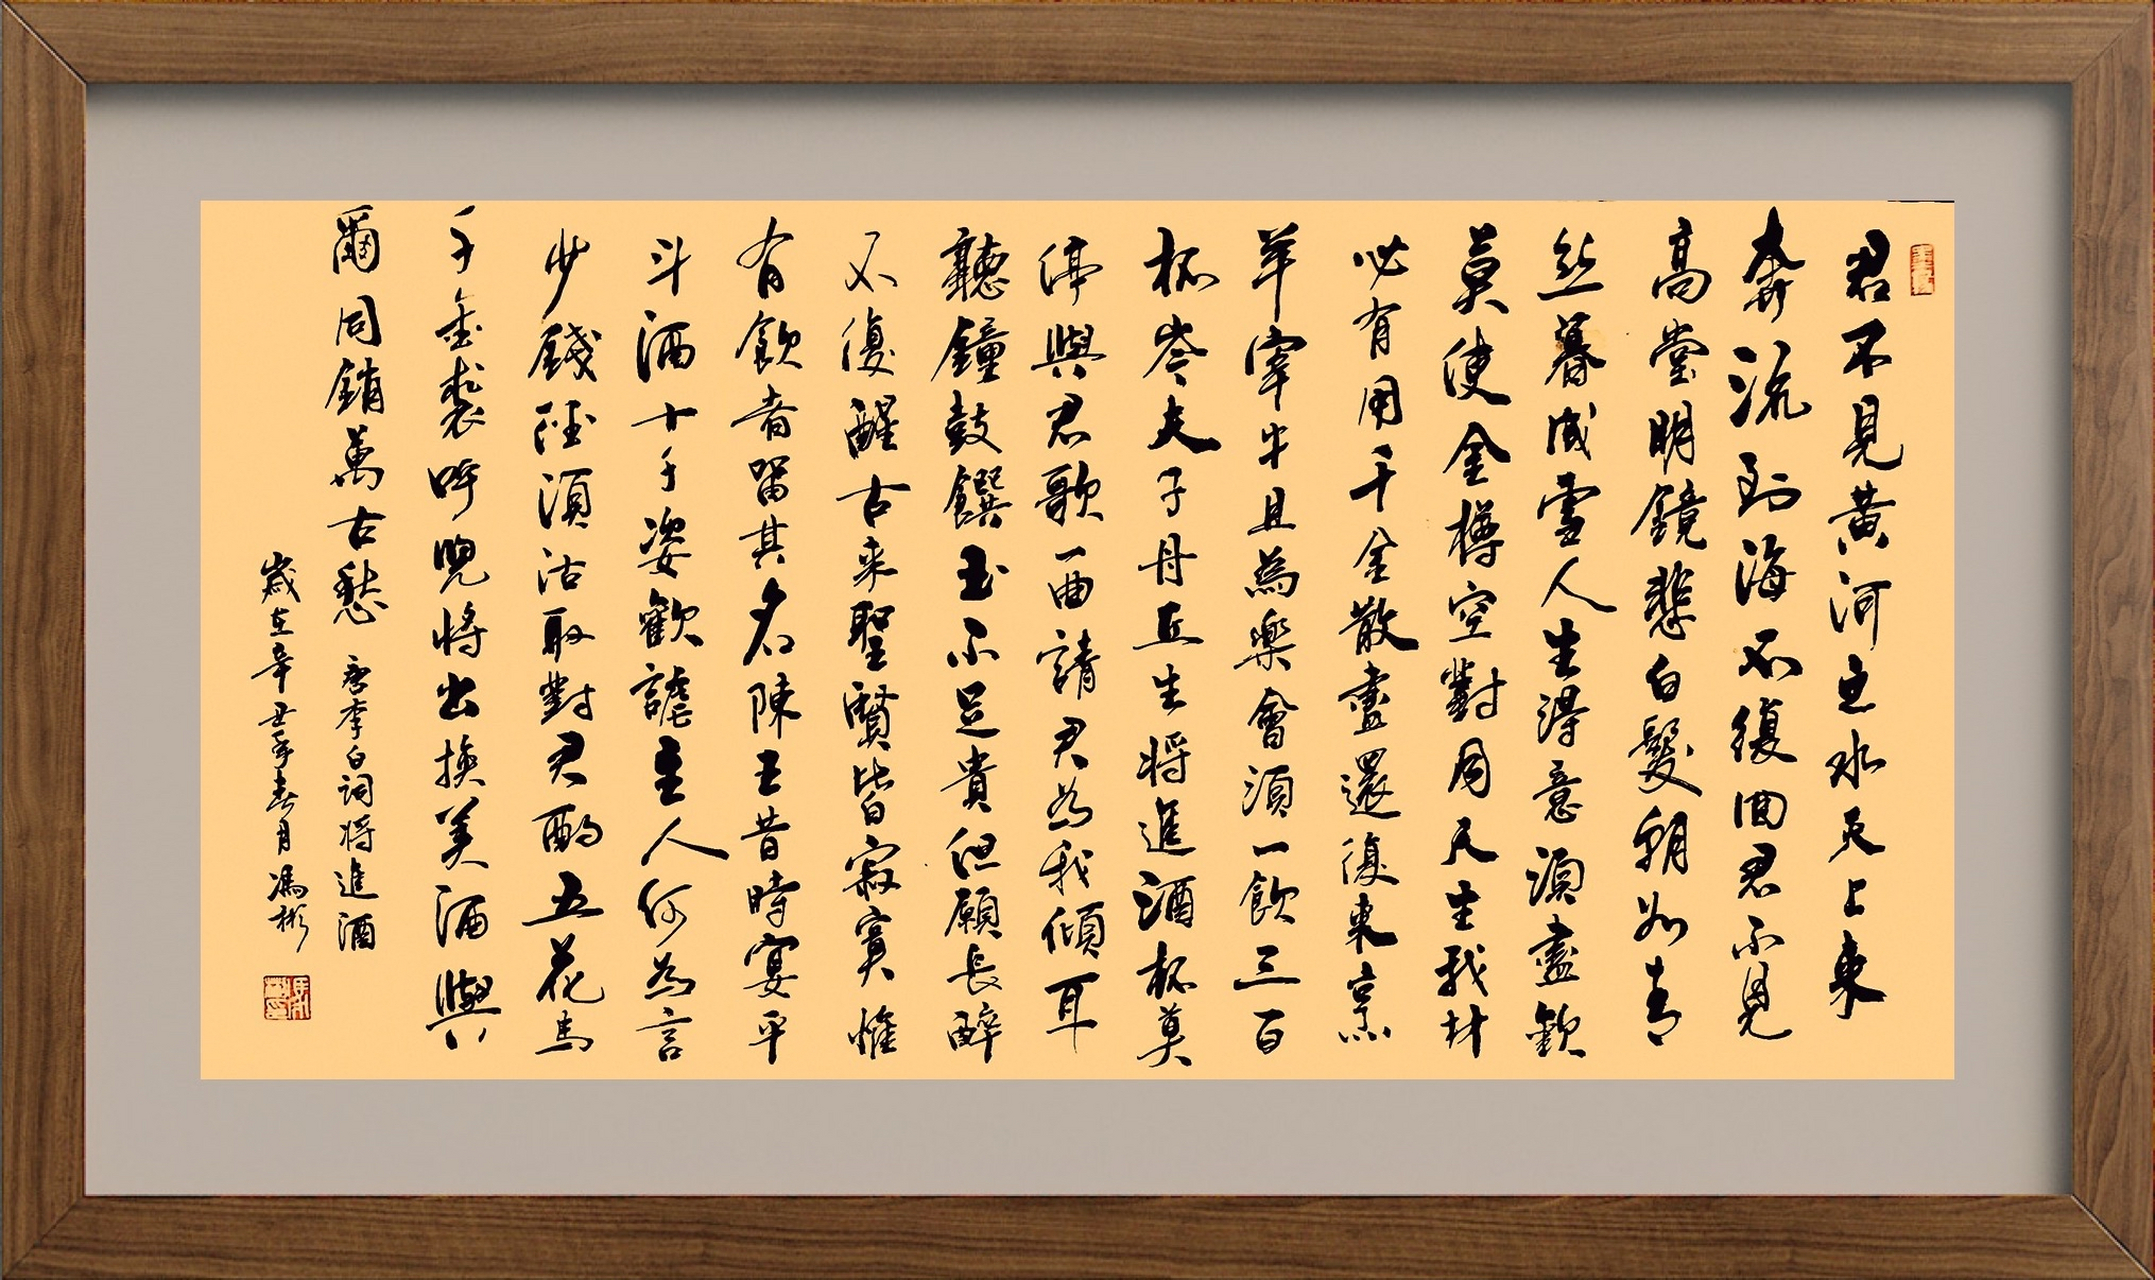 君不見黄河之水天上東
奔流到海不復回君不見
高堂明鏡悲白髮朝如青
丝暮成雪人生得意須盡歡
莫使金樽空對月天生我材
必有用千金散盡還復東烹
羊宰牛且為樂會須一飲三百
杯岑夫子丹丘生将進酒杯莫
停與君歌一曲請君为我傾耳
聽鐘鼓饌玉不足貴但願長醉
不復醒古来聖賢皆寂寞惟
有飲者留其名陳王昔時宴平
斗酒十千姿歡謔主人何为言
少錢径須沽取對君酌五花馬
千金裘呼児将出換美酒與
爾同銷萬古愁 唐李白詞将進酒
歲在辛丑年春月馮彬